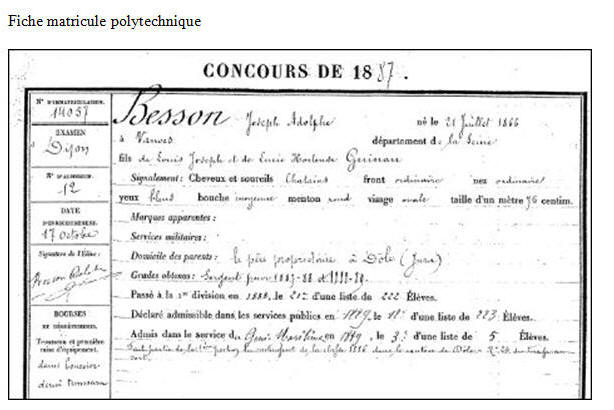 Fiche matricule polytechnique
CONCOURS DE 1887.
N° D'IMMATRICULATION.
14057
EXAMEN
à Dijon
N° D'ADMISSION.
12
DATE
D'ENREGISTREMENT.
17 octobre
Signature de l'Élève:
Besson
BOURSES
ET DÉGRÈVEMENTS.
Trousseau et première
mise d'équipement.
demi boursier
demi trousseau
Besson Joseph Adolphe né le 21 Juillet 1866
à Vanves département de la Seine
fils de Louis Joseph et de Marie Hortense Guinau
Signalement: Cheveux et sourcils Chatains front ordinaire nez ordinaire
yeux bleus bouche moyenne menton rond visage ovale taille d'un mètre 76 centim.
Marques apparentes:
Services militaires:
Domicile des parents: le père propriétaire à Dôle (Jura)
Grades obtenus: Sergent pour 1887-88 et 1888-89.
Passé à la 1re division en 1888, le 21e d'une liste de 222 Élèves.
Déclaré admissible dans les services publics en 1889, le 11e d'une liste de 223 Élèves.
Admis dans le service du Génie Maritime en 1889, le 3e d'une liste de 5 Élèves.
Fait partie de la classe 1886 dans le canton de Dôle